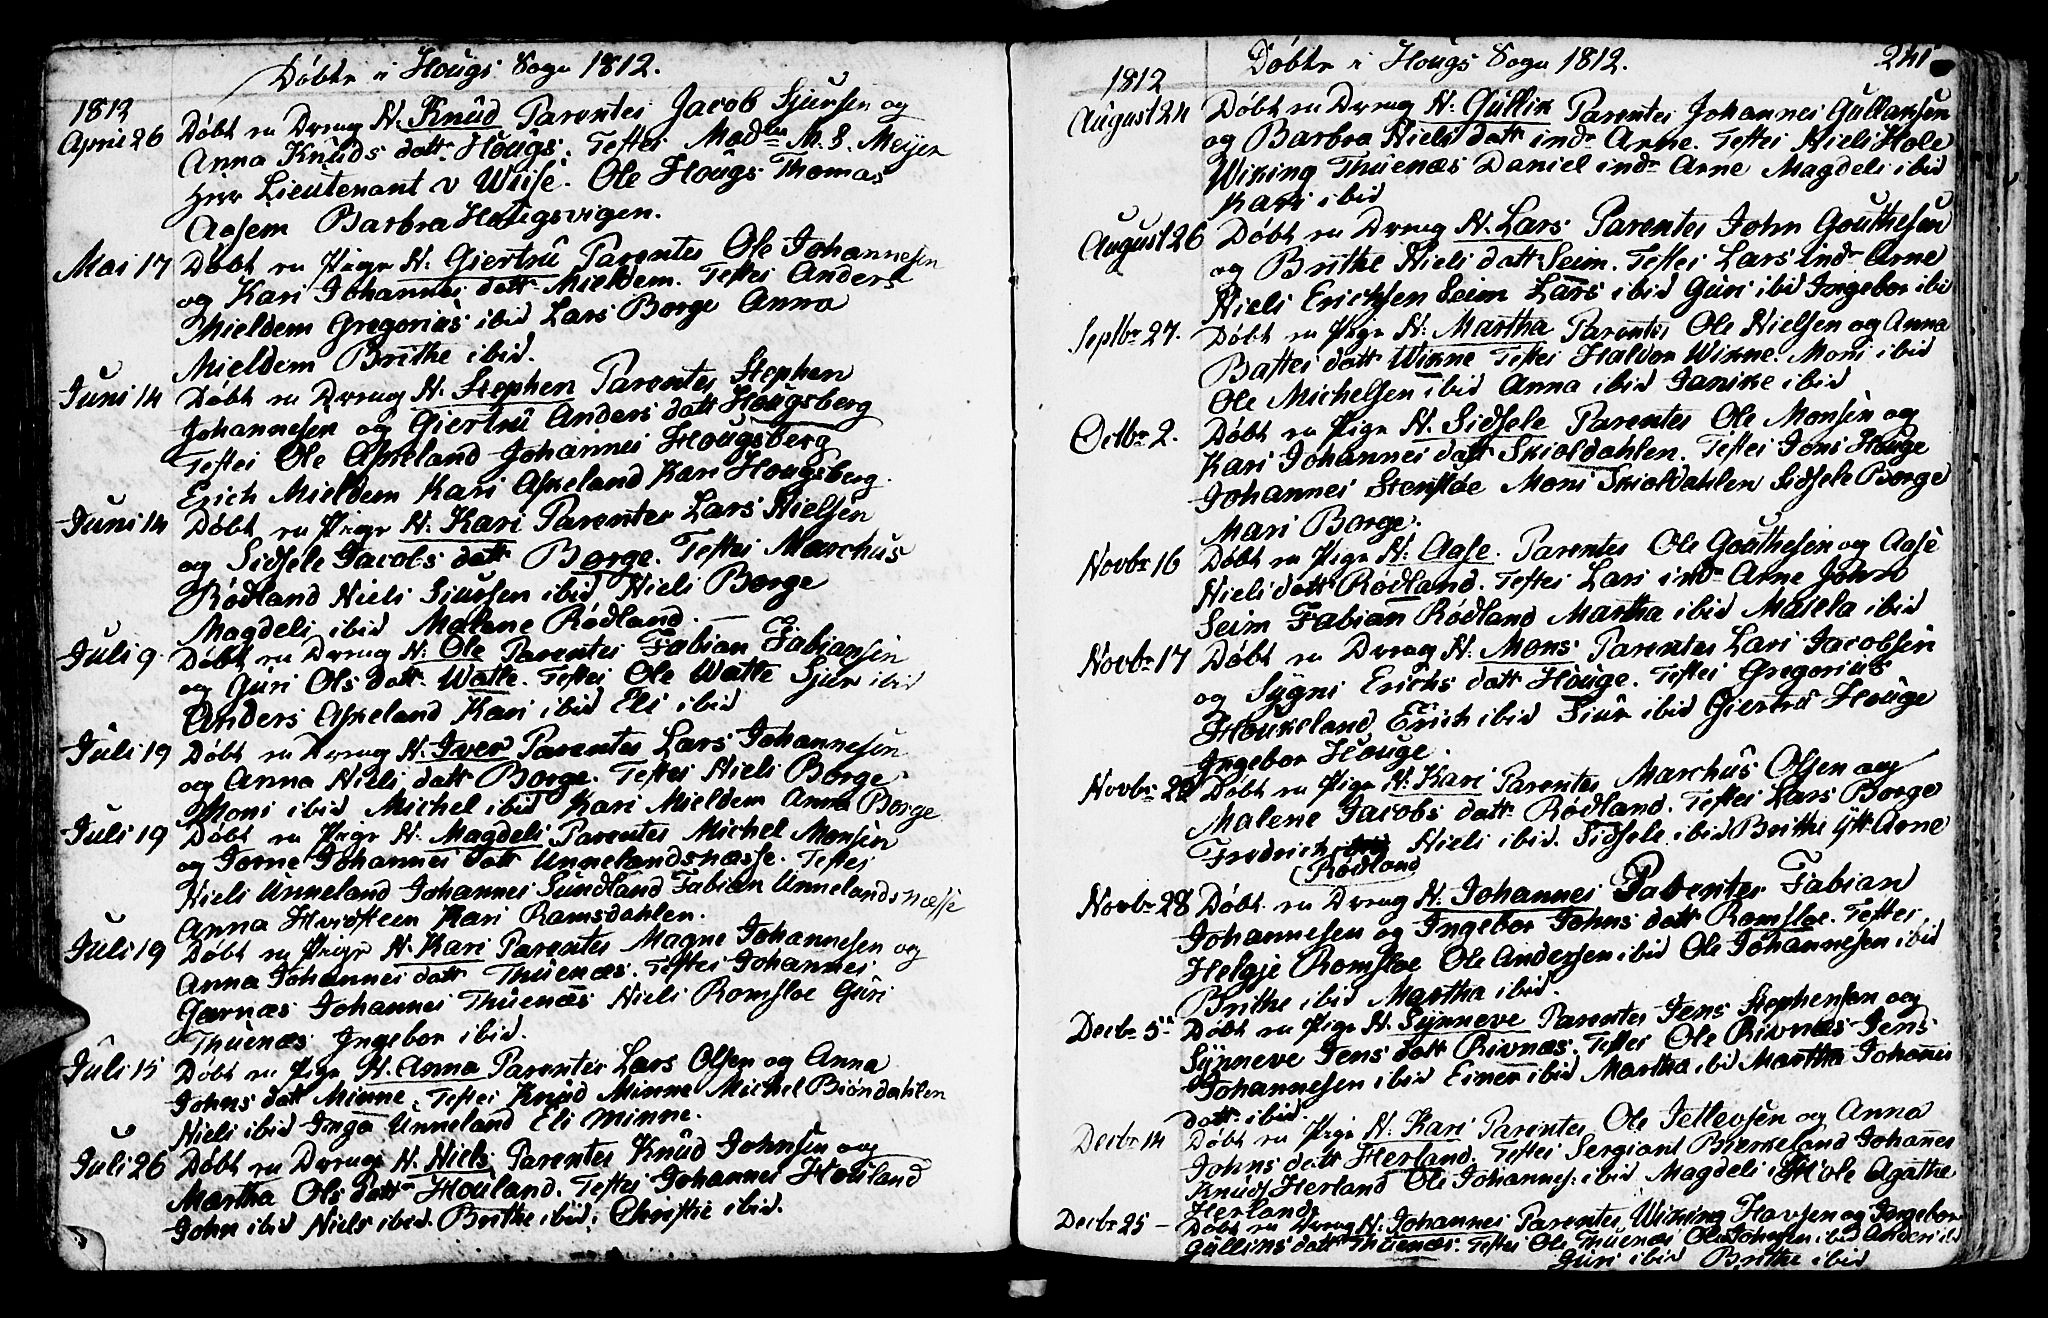 Døbte i Hougs Sogn 1812.
1812
April 26 Døbt en Dreng N. Knud Parentes Jacob Sjursen og
Anna Knuds datt. Hougs. Testes Madme M. S. Meyer
Herr Lieutenant v Weise. Ole Hougs Thomas
Aasem Barbra Hougsvigen.
Mai 17 Døbt en Pige N. Giertru Parentes Ole Johannesen
og Kari Johannes datt Mieldem. Testes Anders
Mieldem Gregorius ibid Lars Borge Anna
Mieldem Brithe ibid.
Juni 14 Døbt en Dreng N. Stephen Parentes Stephen
Johannesen og Giertru Anders datt Hougsberg
Testes Ole Askeland Johannes Hougsberg
Erich Mieldem Kari Askeland Kari Hougsberg.
Juni 14 Døbt en Pige N. Kari Parentes Lars Nielsen
og Sidsele Jacobs datt Borge. Testes Marchus
Rødland Niels Siursen ibid Niels Borge
Magdeli ibid Malene Rødland.
Juli 9 Døbt en Dreng N. Ole Parentes Fabian Fabiansen
og Guri Ols datt. Watle. Testes Ole Watle Sjur ibid
Anders Askeland Kari ibid Eli ibid
Juli 19 Døbt en Dreng N. Iver Parentes Lars Johannesen
og Anna Niels datt Borge. Testes Niels Borge
Mons ibid Michel ibid Kari Mieldem Anna Borge
Juli 19 Døbt en Pige N. Magdeli Parentes Michel Monsen
og Jorne Johannes datt Unnelandsnæsse. Testes
Niels Unneland Johannes Sundland Fabian Unnelandsnæsse
Anna Hvidsteen Kari Ramsdahlen.
Juli 19 Døbt en Pige N. Kari Parentes Magne Johannesen og
Anna Johannes datt Thuenæs. Testes Johannes
Garnæs Johannes Thuenæs Niels Romsloe Guri
Thuenæs Ingebor ibid.
Juli 15 Døbt en Pige N. Anna Parentes Lars Olsen og Anna
Johns datt Minne. Testes Knud Minne Michel Biøndahlen
Niels ibid Inga Unneland Eli Minne.
Juli 26 Døbt en Dreng N. Niels Parentes Knud Johnsen og
Martha Ols datt Houland. Testes Johannes Houland
John ibid Niels ibid. Brithe ibid. Christie ibid.
Døbte i Hougs Sogn 1812. 241
1812
August 24 Døbt en Dreng N. Gullik Parentes Johannes Gullaksen
og Barbra Niels datt indr Arne. Testes Niels Hole
Wiking Thuenæs Daniel indr Arne Magdeli ibid
Kari ibid
August 26 Døbt en Dreng N. Lars Parentes John Gouthesen
og Brithe Niels datt Seim. Testes Lars indr Arne
Niels Erichsen Seim Lars ibid Guri ibid Ingebor ibid
Septbr 27. Døbt en Pige N. Martha Parentes Ole Nielsen og Anna
Bastes datt Winne Testes Haldor Winne. Mons ibid
Ole Michelsen ibid Anna ibid Janike ibid
Octbr 2. Døbt en Pige N. Sidsele Parentes Ole Monsen og
Kari Johannes datt Skioldahlen. Testes Jons Houge
Johannes Stensløe Mons Skioldahlen Sidsele Borge
Mari Borge.
Novbr 16 Døbt en Pige N. Aase. Parentes Ole Gouthesen og Aase
Niels datt Rødland. Testes Lars indr Arne John
Seim Fabian Rødland Martha ibid Malela ibid
Novbr 17 Døbt en Dreng N. Mons Parentes Lars Jacobsen
og Sygni Erichs datt Houge. Testes Gregorius
Houkeland Erich ibid Siur ibid Giertru Houge
Ingebor Houge.
Novbr 22 Døbt en Pige N. Kari Parentes Marchus Olsen og
Malene Jacobs datt. Rødland. Testes Lars Borge
Fredrich Niels ibid. Sidsele ibid Brithe Ytt Arne
Rødland
Novbr 28 Døbt en Dreng N. Johannes Parentes Fabian
Johannesen og Ingebor Johns datt Romsloe. Testes
Helgje Romsloe Ole Andersen ibid Ole Johannesen ibid
Brithe ibid Martha ibid.
Decbr 5 Døbt en Pige N. Synneve Parentes Jens Stephensen og
Synneve Jens datt Rivnæs. Testes Ole Rivnæs Jens
Johannesen ibid Einer ibid Martha ibid Martha Johannes
datt. ibid
Decbr 14 Døbt en Pige N. Kari Parentes Ole Jetlevsen og Anna
Johns datt Herland. Testes Sergiant Bierkeland Johannes
Knuds Herland Ole Johannes: ibid Magdeli Hole Agathe
Herland.
Decbr 25 – Døbt en Dreng N. Johannes Parentes Wiking Havsen og Ingebor
Gullins datt Thuenæs. Testes Ole Thuenæs Ole Johnsen ibid Anders ibid
Guri ibid Brithe ibid